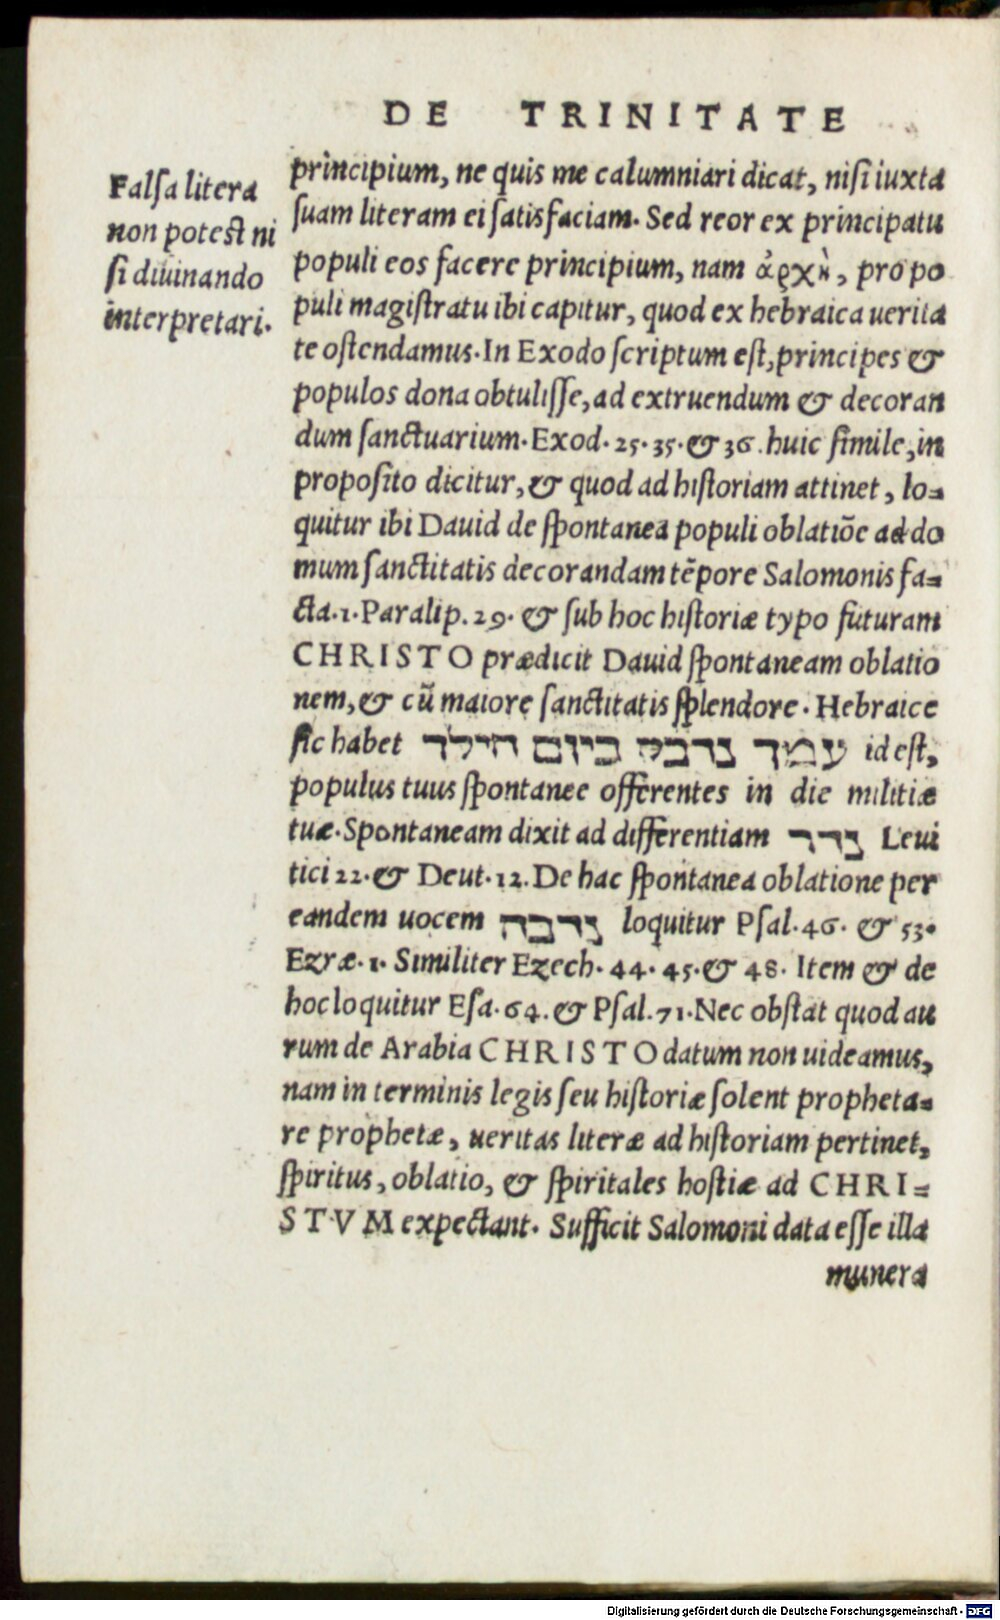 DE TRINITATE
Falsa litera
non potest ni
si diuinando
interpretari.
principium, ne quis me calumniari dicat, nisi iuxta
suam literam ei satisfaciam. Sed reor ex principatu
populi eos facere principium, nam ἀρχὴ, pro po
puli magistratu ibi capitur, quod ex hebraica uerita
te ostendamus. In Exodo scriptum est, principes &
populos dona obtulisse, ad extruendum & decoran
dum sanctuarium. Exod. 25. 35. & 36. huic simile, in
proposito dicitur, & quod ad historiam attinet, lo=
quitur ibi Dauid de spontanea populi oblatiōe ad do
mum sanctitatis decorandam tēpore Salomonis fa=
cta. 1. Paralip. 29. & sub hoc historiæ typo futuram
CHRISTO prædicit Dauid spontaneam oblatio
nem, & cū maiore sanctitatis splendore. Hebraice
sic habet עמך נדבה ביום חילך id est,
populus tuus spontanee offerentes in die militiæ
tuæ. Spontaneam dixit ad differentiam נדר Leui
tici 22. & Deut. 12. De hac spontanea oblatione per
eandem uocem נדבה loquitur Psal. 46. & 53.
Ezræ. 1. Similiter Ezech. 44. 45. & 48. Item & de
hoc loquitur Esa. 64. & Psal. 71. Nec obstat quod au
rum de Arabia CHRISTO datum non uideamus,
nam in terminis legis seu historiæ solent propheta=
re prophetæ, ueritas literæ ad historiam pertinet,
spiritus, oblatio, & spiritales hostiæ ad CHRI=
STVM expectant. Sufficit Salomoni data esse illa
munera
Digitalisierung gefördert durch die Deutsche Forschungsgemeinschaft - DFG